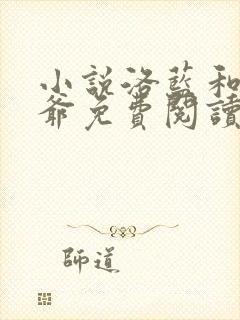 小說洛藍和
爺免費閱讀
師道